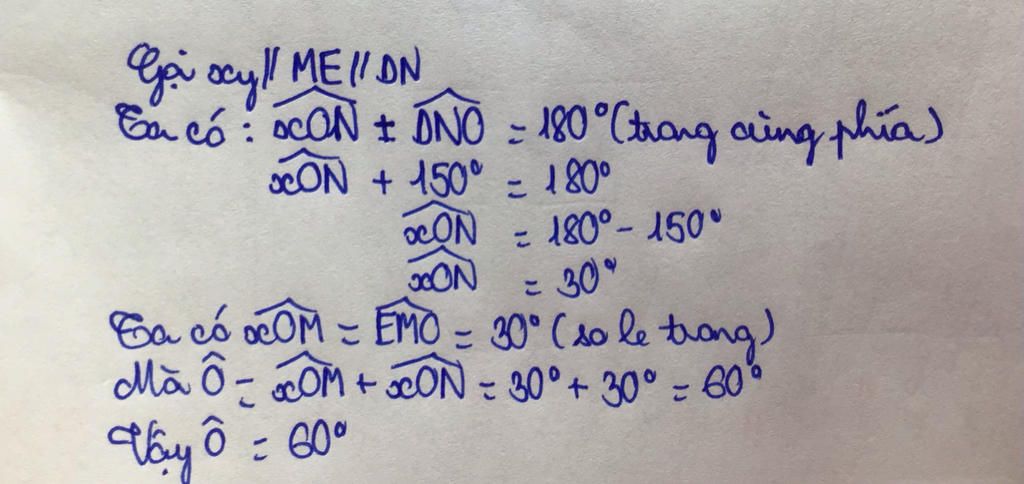 Gọi xy // ME // DN
Ta có : xON ± DNO = 180° (trong cùng phía)
xON + 150° = 180°
xON = 180° - 150°
xON = 30°
Ta có xOM = EMO = 30° (so le trong)
Mà Ô = xOM + xON = 30° + 30° = 60°
Vậy Ô = 60°